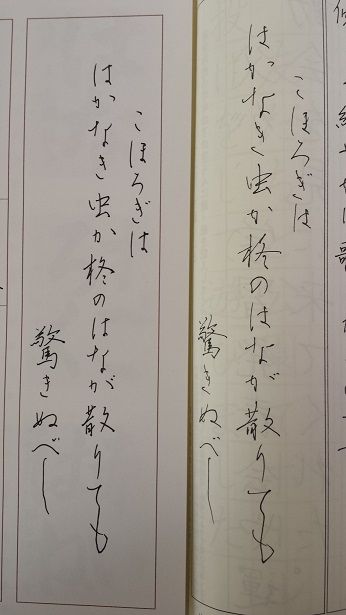 こほろぎは
はかなき虫か柊のはなが散りても
驚きぬべし
こほろぎは
はかなき虫か柊のはなが散りても
驚きぬべし